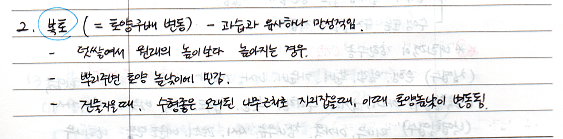 2. 복토 (= 토양구배 변동) - 과습과 유사하나 만성적임.
- 덧쌓여서 원래의 높이보다 높아지는 경우.
- 뿌리주변 토양 높낮이에 민감.
- 건물지을때, 수형좋은 오래된 나무근처로 지리잡을때, 이때 토양높낮이 변동됨.